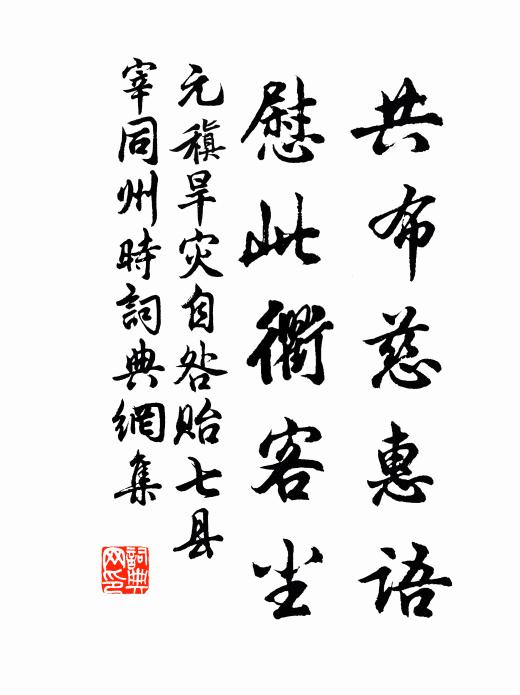 共布慈惠語
慰此衢客尘
元稹旱灾自咎贻七县
宰同州時詞典網集
詞典
网印